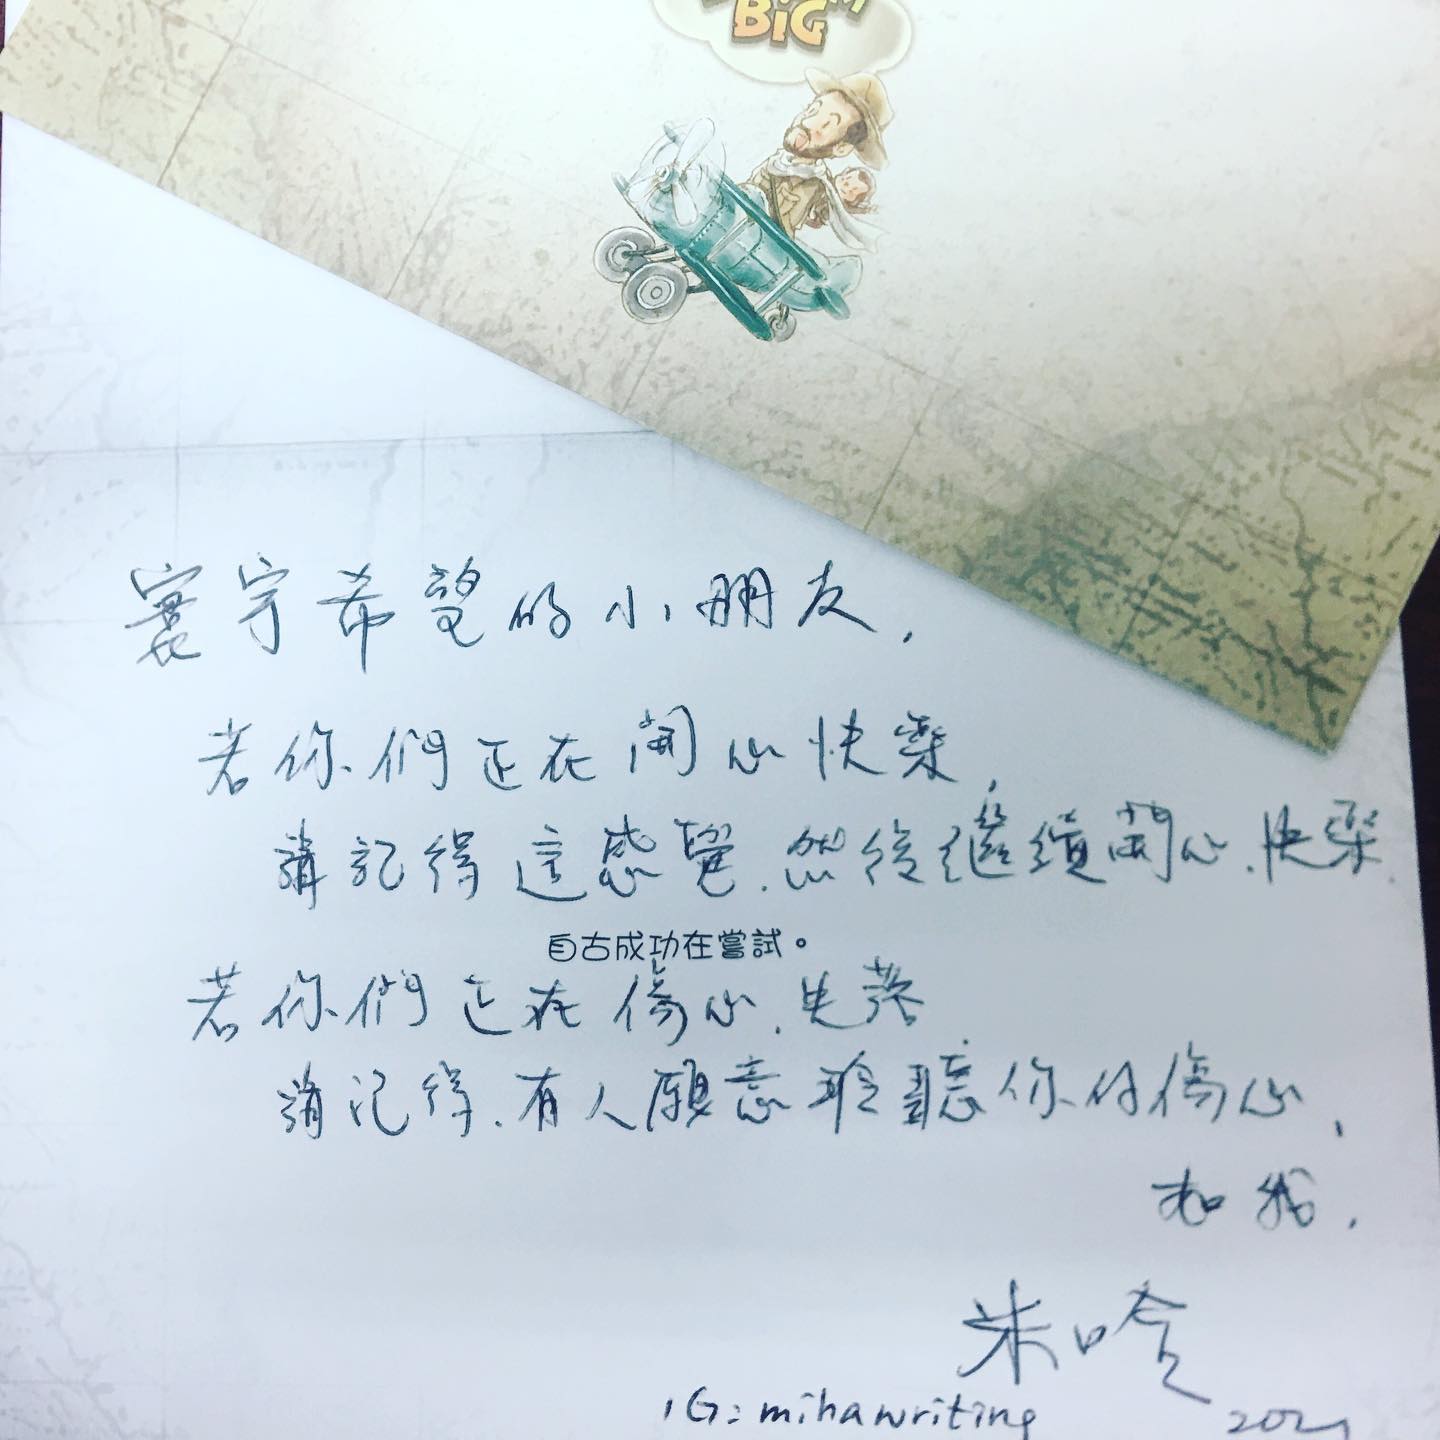 BIG
寰宇希望的小朋友,
若你們正在開心快樂,
請記得這感覺.然後繼續開心.快樂.
自古成功在嘗試。
若你們正在傷心.失落
請記得.有人願意聆聽你的傷心,
如我.
朱
IG:mihawriting